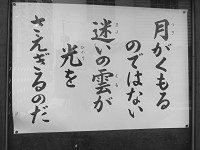 月がくもる
のではない
迷いの雲が
光を
さえぎるのだ